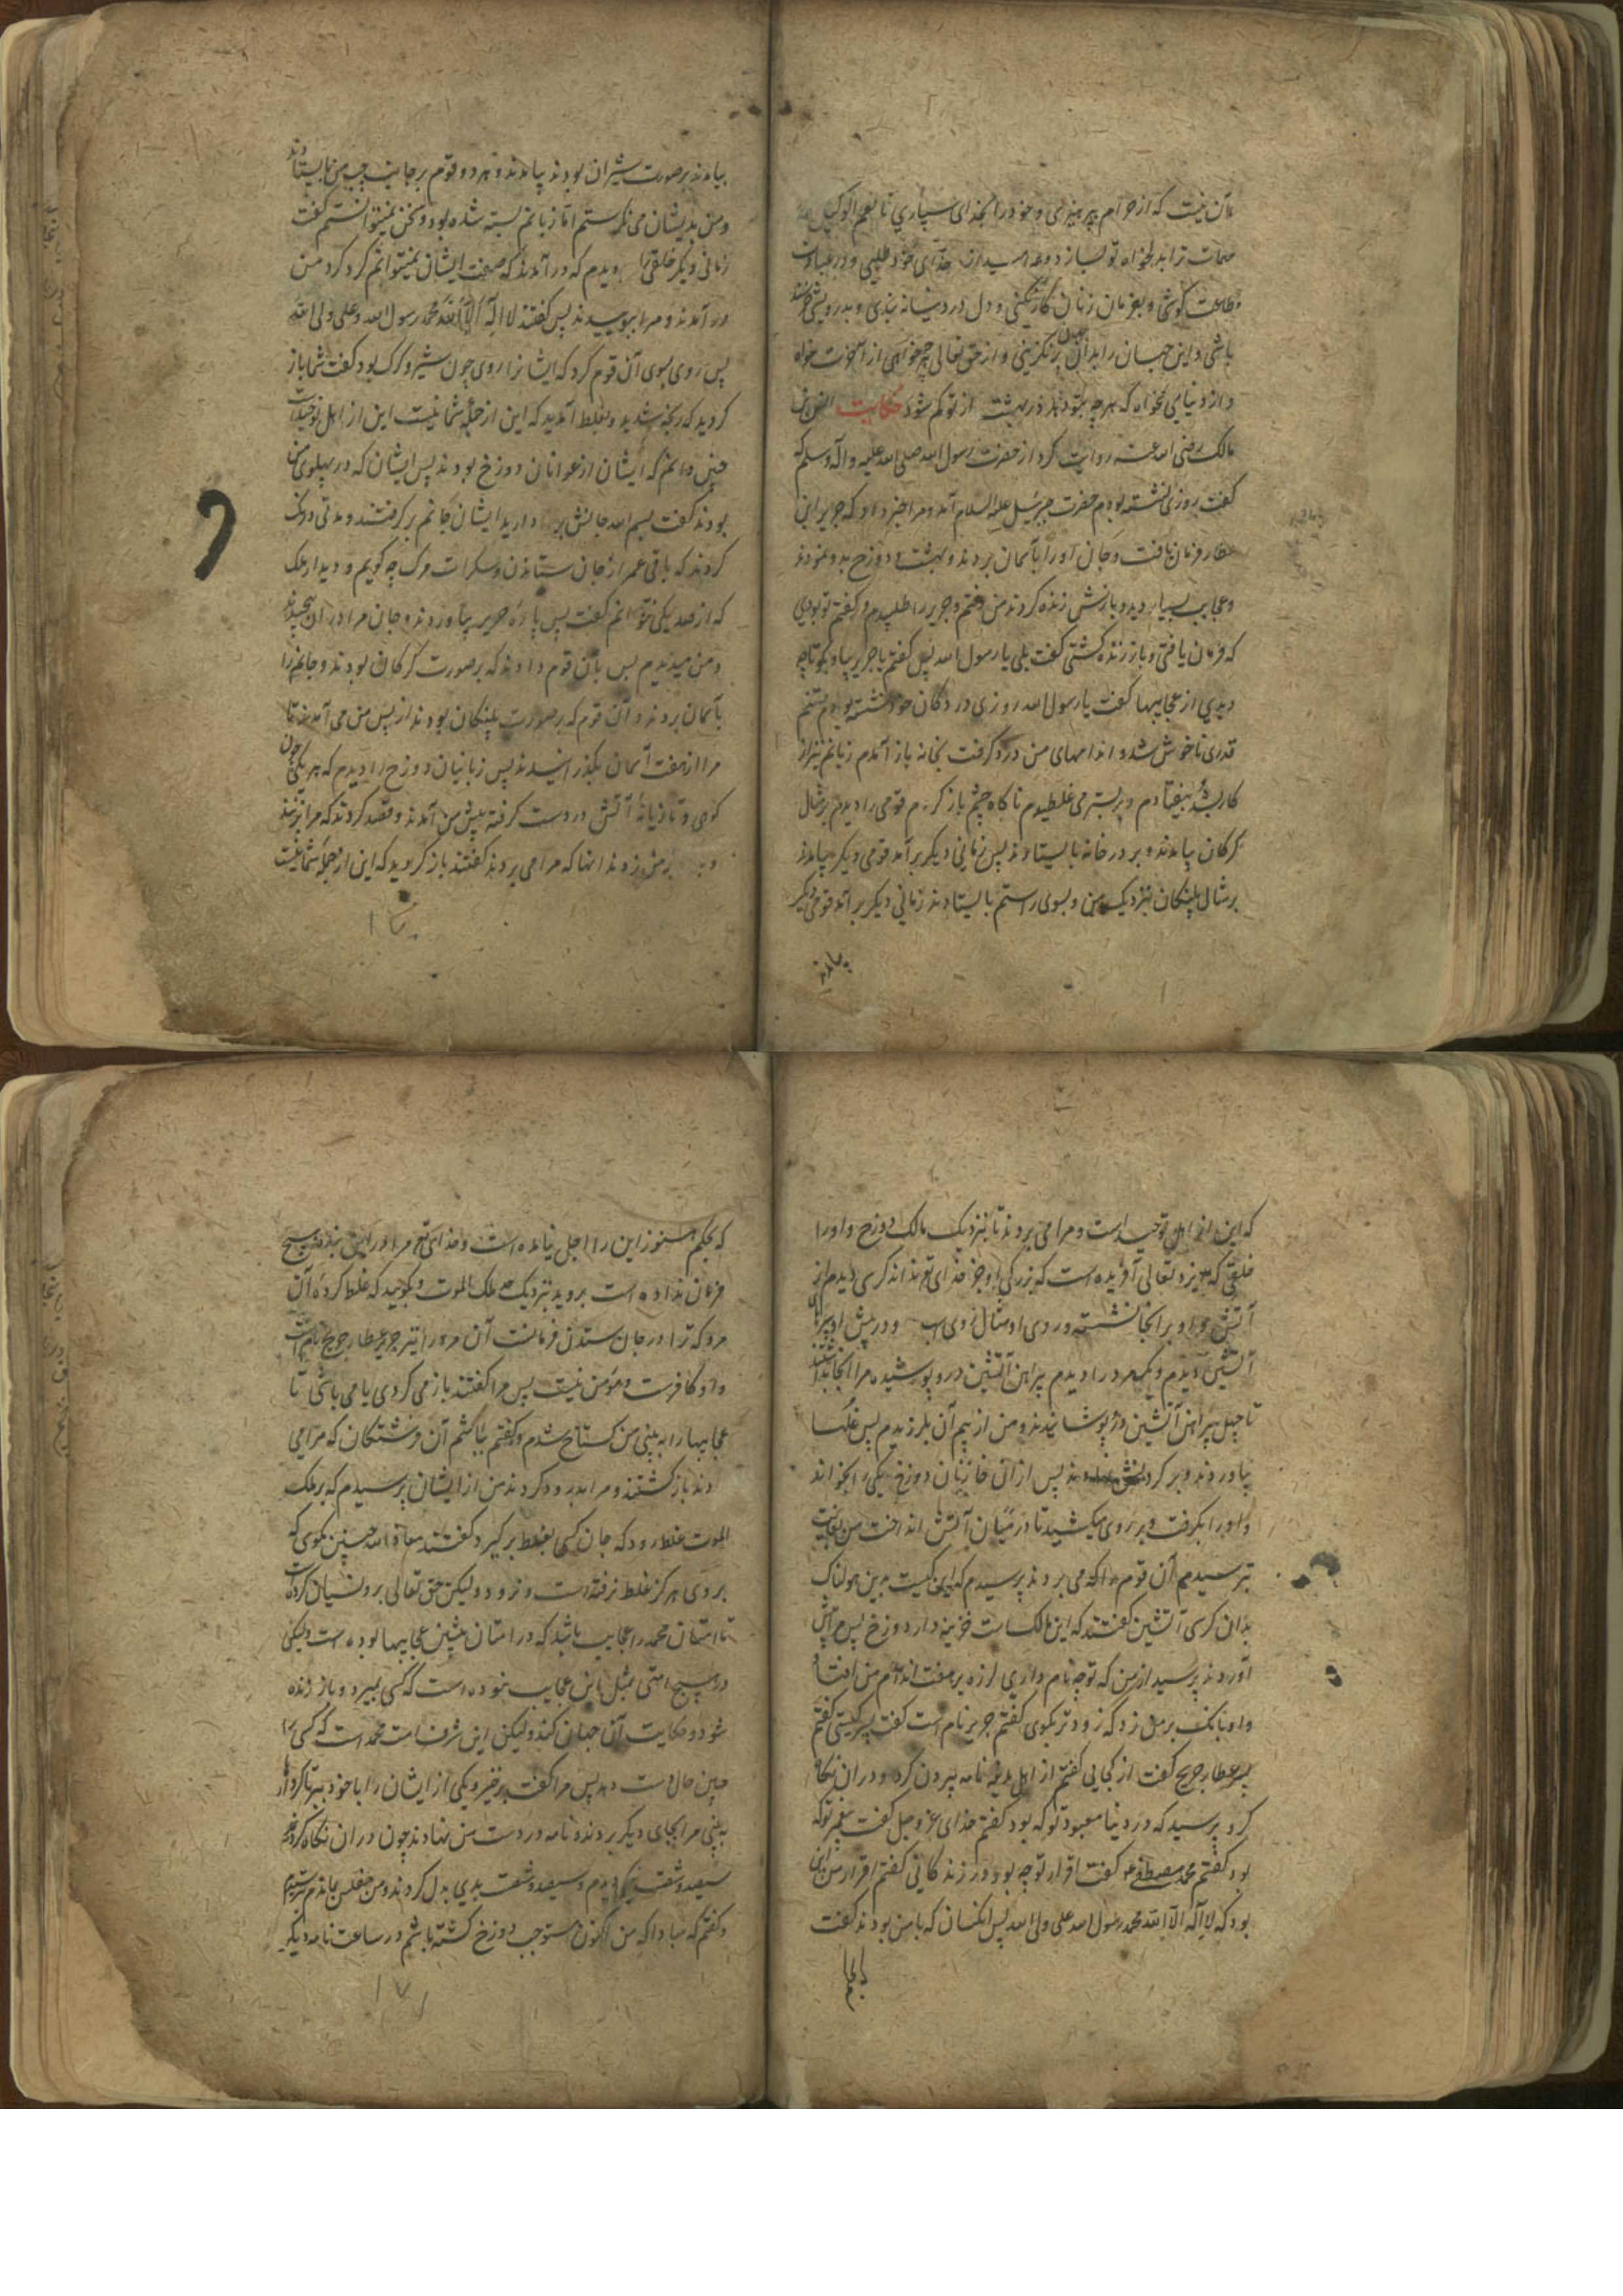 آن نیست که از حرام پرهیزی و خود را بخدای سپاری تا نعم الوکیل
مهمات ترا بدلخواه تو بسازد و عمر امید از خدای خود طلبی و در عبادت
و طاعت کوشی و بفرمان زنان کار نکنی و دل در دنیا نبندی و بدرویشی خرسند
باشی و این جهان را بدان جهان برنگزینی و از حق تعالی هر چه خواهی از آخرت خواه
و از دنیا می نخواه که هر چه بتو دهد در بهشت از تو کم شود حکایت انس بن
مالک رضی الله عنه روایت کرد از حضرت رسول الله صلی الله علیه و آله وسلم که
گفت روزی نشسته بودم حضرت جبرئیل علیه السلام آمد و مرا خبر داد که جریر ابن
عطار فرمان یافت و جان او را بآسمان بردند و بهشت و دوزخ بدو نمودند
و عجایب بسیار دید و بازش زنده کردند من رفتم و جریر را طلبیدم و گفتم تو بودی
که فرمان یافتی و باز زنده گشتی گفت بلی یا رسول الله پس گفتم یا جریر بیا و بگو تا چه
دیدی از عجایبها گفت یا رسول الله روزی در دکان خود نشسته بودم تنم
قدری ناخوش شد و اندامهای من درد گرفت بخانه باز آمدم زبانم نیز از
کار بشد بیفتادم و بر بستر می غلطیدم ناگاه چشم باز کردم قومی را دیدم بر مثال
گرگان بیامدند و بر در خانه بایستادند پس زمانی دیگر برآمد قومی دیگر بیامدند
بر مثال پلنگان نزدیک من و بسوی راستم بایستادند زمانی دیگر برآمد قومی دیگر
بیامدند
بیامدند بر صورت شیران بودند بیامدند و هر دو قوم بر جانب چپ من بایستادند
و من بدیشان می نگرستم اما زبانم بسته شده بود و سخن نمیتوانستم گفت
زمانی دیگر خلقی را دیدم که در آمدند که صفت ایشان نمیتوانم کرد گرد من
در آمدند و مرا ببوییدند پس گفتند لا اله الا الله محمد رسول الله و علی ولی الله
پس روی بسوی آن قوم کرد که ایشانرا روی چون شیر و گرگ بود گفت شما باز
گردید که رنجه شدید و بغلط آمدید که این از جمله شما نیست این از اهل توحید است
چنین دانم که ایشان از عوانان دوزخ بودند پس ایشان که در پهلوی من
بودند گفت بسم الله جانش بردارید ایشان جانم برگرفتند و مدتی درنگ
کردند که باقی عمر از جان ستاندن و سکرات مرگ چه گویم و دیدار ملک
که از صد یکی نتوانم گفت پس پاره حریر بیاوردند و جان مرا در آن پیچیدند
و من میدیدم پس بآن قوم دادند که بر صورت گرگان بودند و جانم را
بآسمان بردند و آن قوم که بر صورت پلنگان بودند از پس من می آمدند تا
مرا از هفت آسمان بگذرانیدند پس زبانیان دوزخ را دیدم که هر یکی چون
کوهی و تازیانه آتش در دست گرفته پیش من آمدند و قصد کردند که مرا بزنند
بر من زدند آنها که مرا می بردند گفتند باز گردید که این از جمله شما نیست
۱۷۰
که این از اهل توحید است و مرا می بردند تا نزدیک مالک دوزخ و او را
خلقی که عز و تعالی آفریده است که بزرگی او جز خدای تع نداند کرسی دیدم از
آتش و او بر آنجا نشسته و روی او مثال روی اسب و در پیش او پیراهن
آتشین دیدم و یکمرد را دیدم پیراهن آتشین درو پوشیده مرا آنجا بداشتند
تا چهل پیراهن آتشین درو پوشانیدند و من از بیم آن بلرزیدم پس غلها
بیاوردند و بر گردنش نهادند پس از آن خازنان دوزخ یکی را بخواند
و او را بگرفت و بر روی میکشید تا در میان آتش انداخت من بغایت
بترسیدم آن قوم را که می بردند پرسیدم که این کیست بدین هولناکی
بدان کرسی آتشین گفتند که این مالک است خزینه دار دوزخ پس مرا پیش
آوردند پرسید از من که تو چه نام داری لرزه بر هفت اندام من افتاد
و او بانک بر من زد که زودتر بگوی گفتم جریر نام است گفت پسر کیستی گفتم
پسر عطار جریح گفت از کجایی گفتم از اهل مدینه نامه بیرون کرد و در آن نگاه
کرد پرسید که در دنیا معبود تو که بود گفتم خدای عز و جل گفت پیغمبر تو که
بود گفتم محمد مصطفی گفت اقرار تو چه بود در زندگانی گفتم اقرار من این
بود که لا اله الا الله محمد رسول الله علی ولی الله پس آنکسان که با من بودند گفت
که بحکم هنوز این را اجل نیامده است و خدای تع مرا در این بنده هیچ
فرمان نداده است بروید نزدیک ملک الموت و بگویید که غلط کرده آن
مرد که ترا در جان ستدن فرمانست آن مرد را نیز جریر عطار جریح نام است
و او کافرست و مومن نیست پس مرا گفتند باز می گردی یا می باشی تا
عجایبها را به بینی من گستاخ شدم و گفتم باشم آن فرشتگان که مرا می
دند باز گشتند و مرا بدرود کردند من از ایشان پرسیدم که بر ملک
الموت غلط رود که جان کسی بغلط برگیرد گفتند معاذ الله چنین مگوی که
بر وی هرگز غلط نرفته است و نرود ولیکن حق تعالی برو نسیان کرده است
تا امتان محمد را عجایب باشد که در امتان پیشین عجایبها بوده است ولیکن
در هیچ امتی مثل این عجایب نبوده است که کسی بمیرد و باز زنده
شود و حکایت آن جهان کند ولیکن این شرف امت محمد است که کسی را
چنین حال دست دهد پس مرا گفت برخیز و یکی از ایشان را با خود ببر تا کردار
به بینی مرا بجای دیگر بردند و نامه در دست من نهادند چون در آن نگاه کردم
سیصد و شصت نیکی دیدم و سیصد و شصت بدی بدل کردند و من مفلس بماندم بترسیدم
و گفتم که مبادا که من اکنون مستوجب دوزخ گشته باشم در ساعت نامه دیگر
۱۷۱